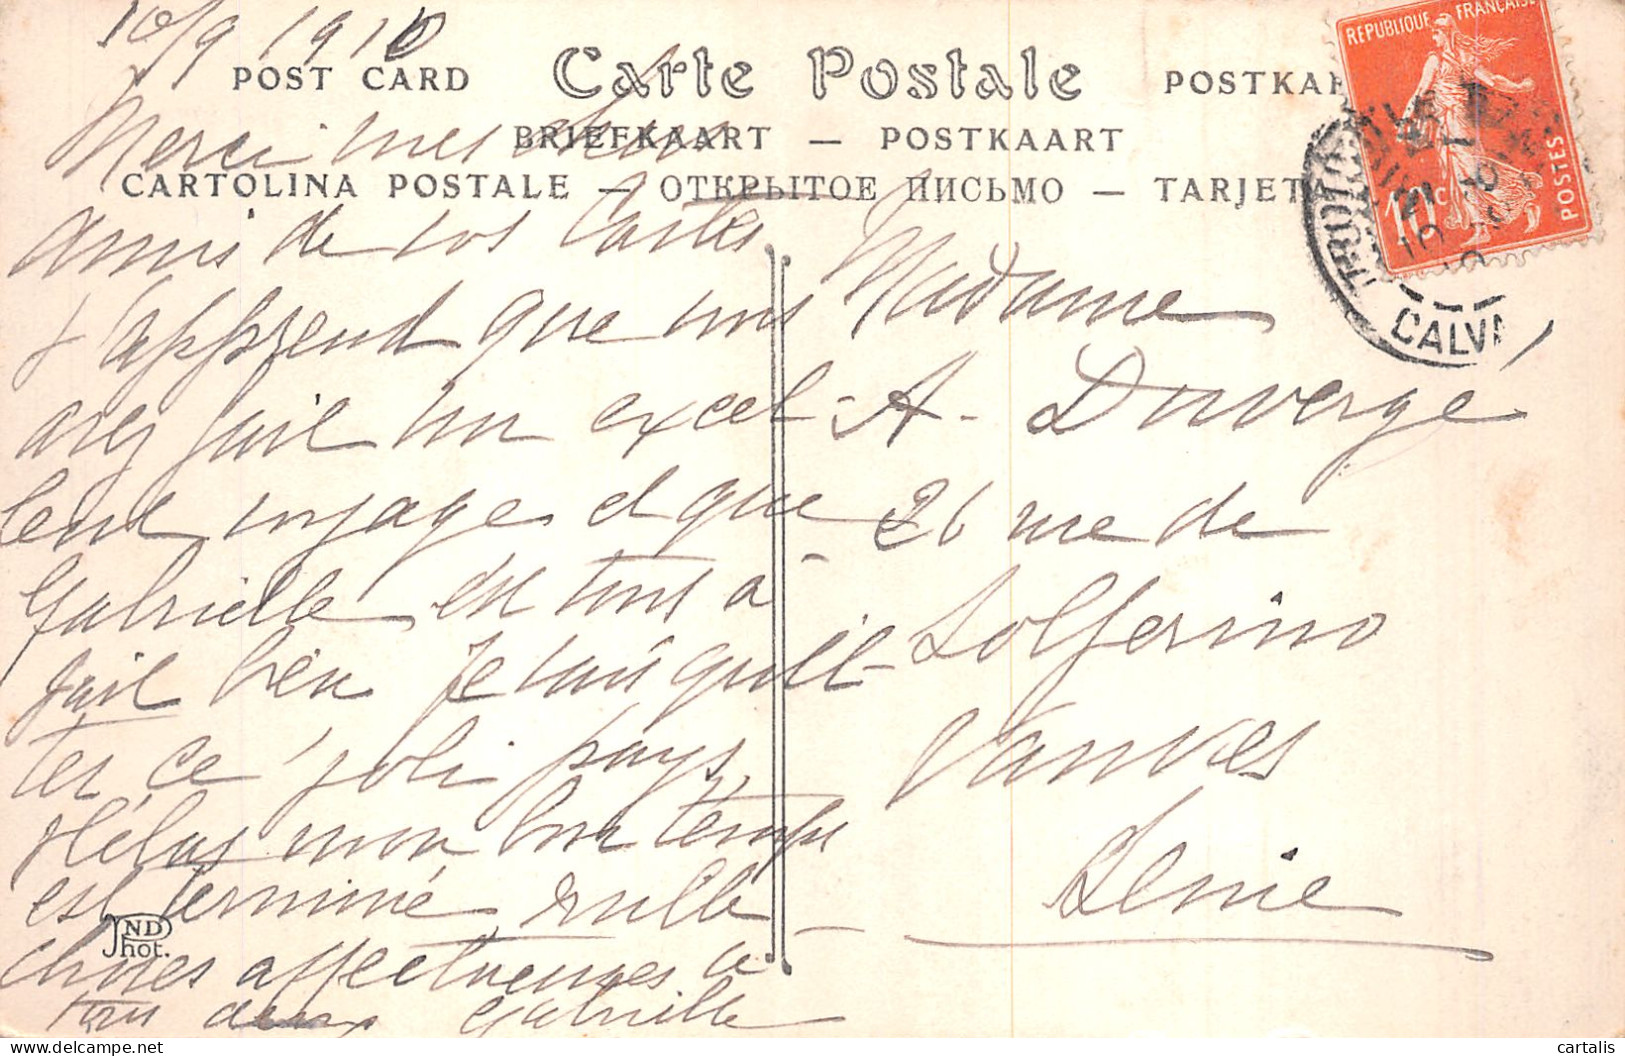 10/9 1910
POST CARD Carte Postale POSTKAR
BRIEFKAART — POSTKAART
CARTOLINA POSTALE — ОТКРЫТОЕ ПИСЬМО — TARJETA
Merci mes chers
amis de vos Cartes
J'apprend que vous
avez fait un excel-
lent voyage et que
Gabrielle
fait bien Je
ce joli pays,
Hélas mon bon temps
est terminé, mille
choses affectueuses à
tous deux Gabrielle
Madame
A. Duvergé
26 rue de
Solferino
Vanves
Seine
REPUBLIQUE FRANÇAISE
10c
POSTES
CALVA
ND
Phot.
cartalis